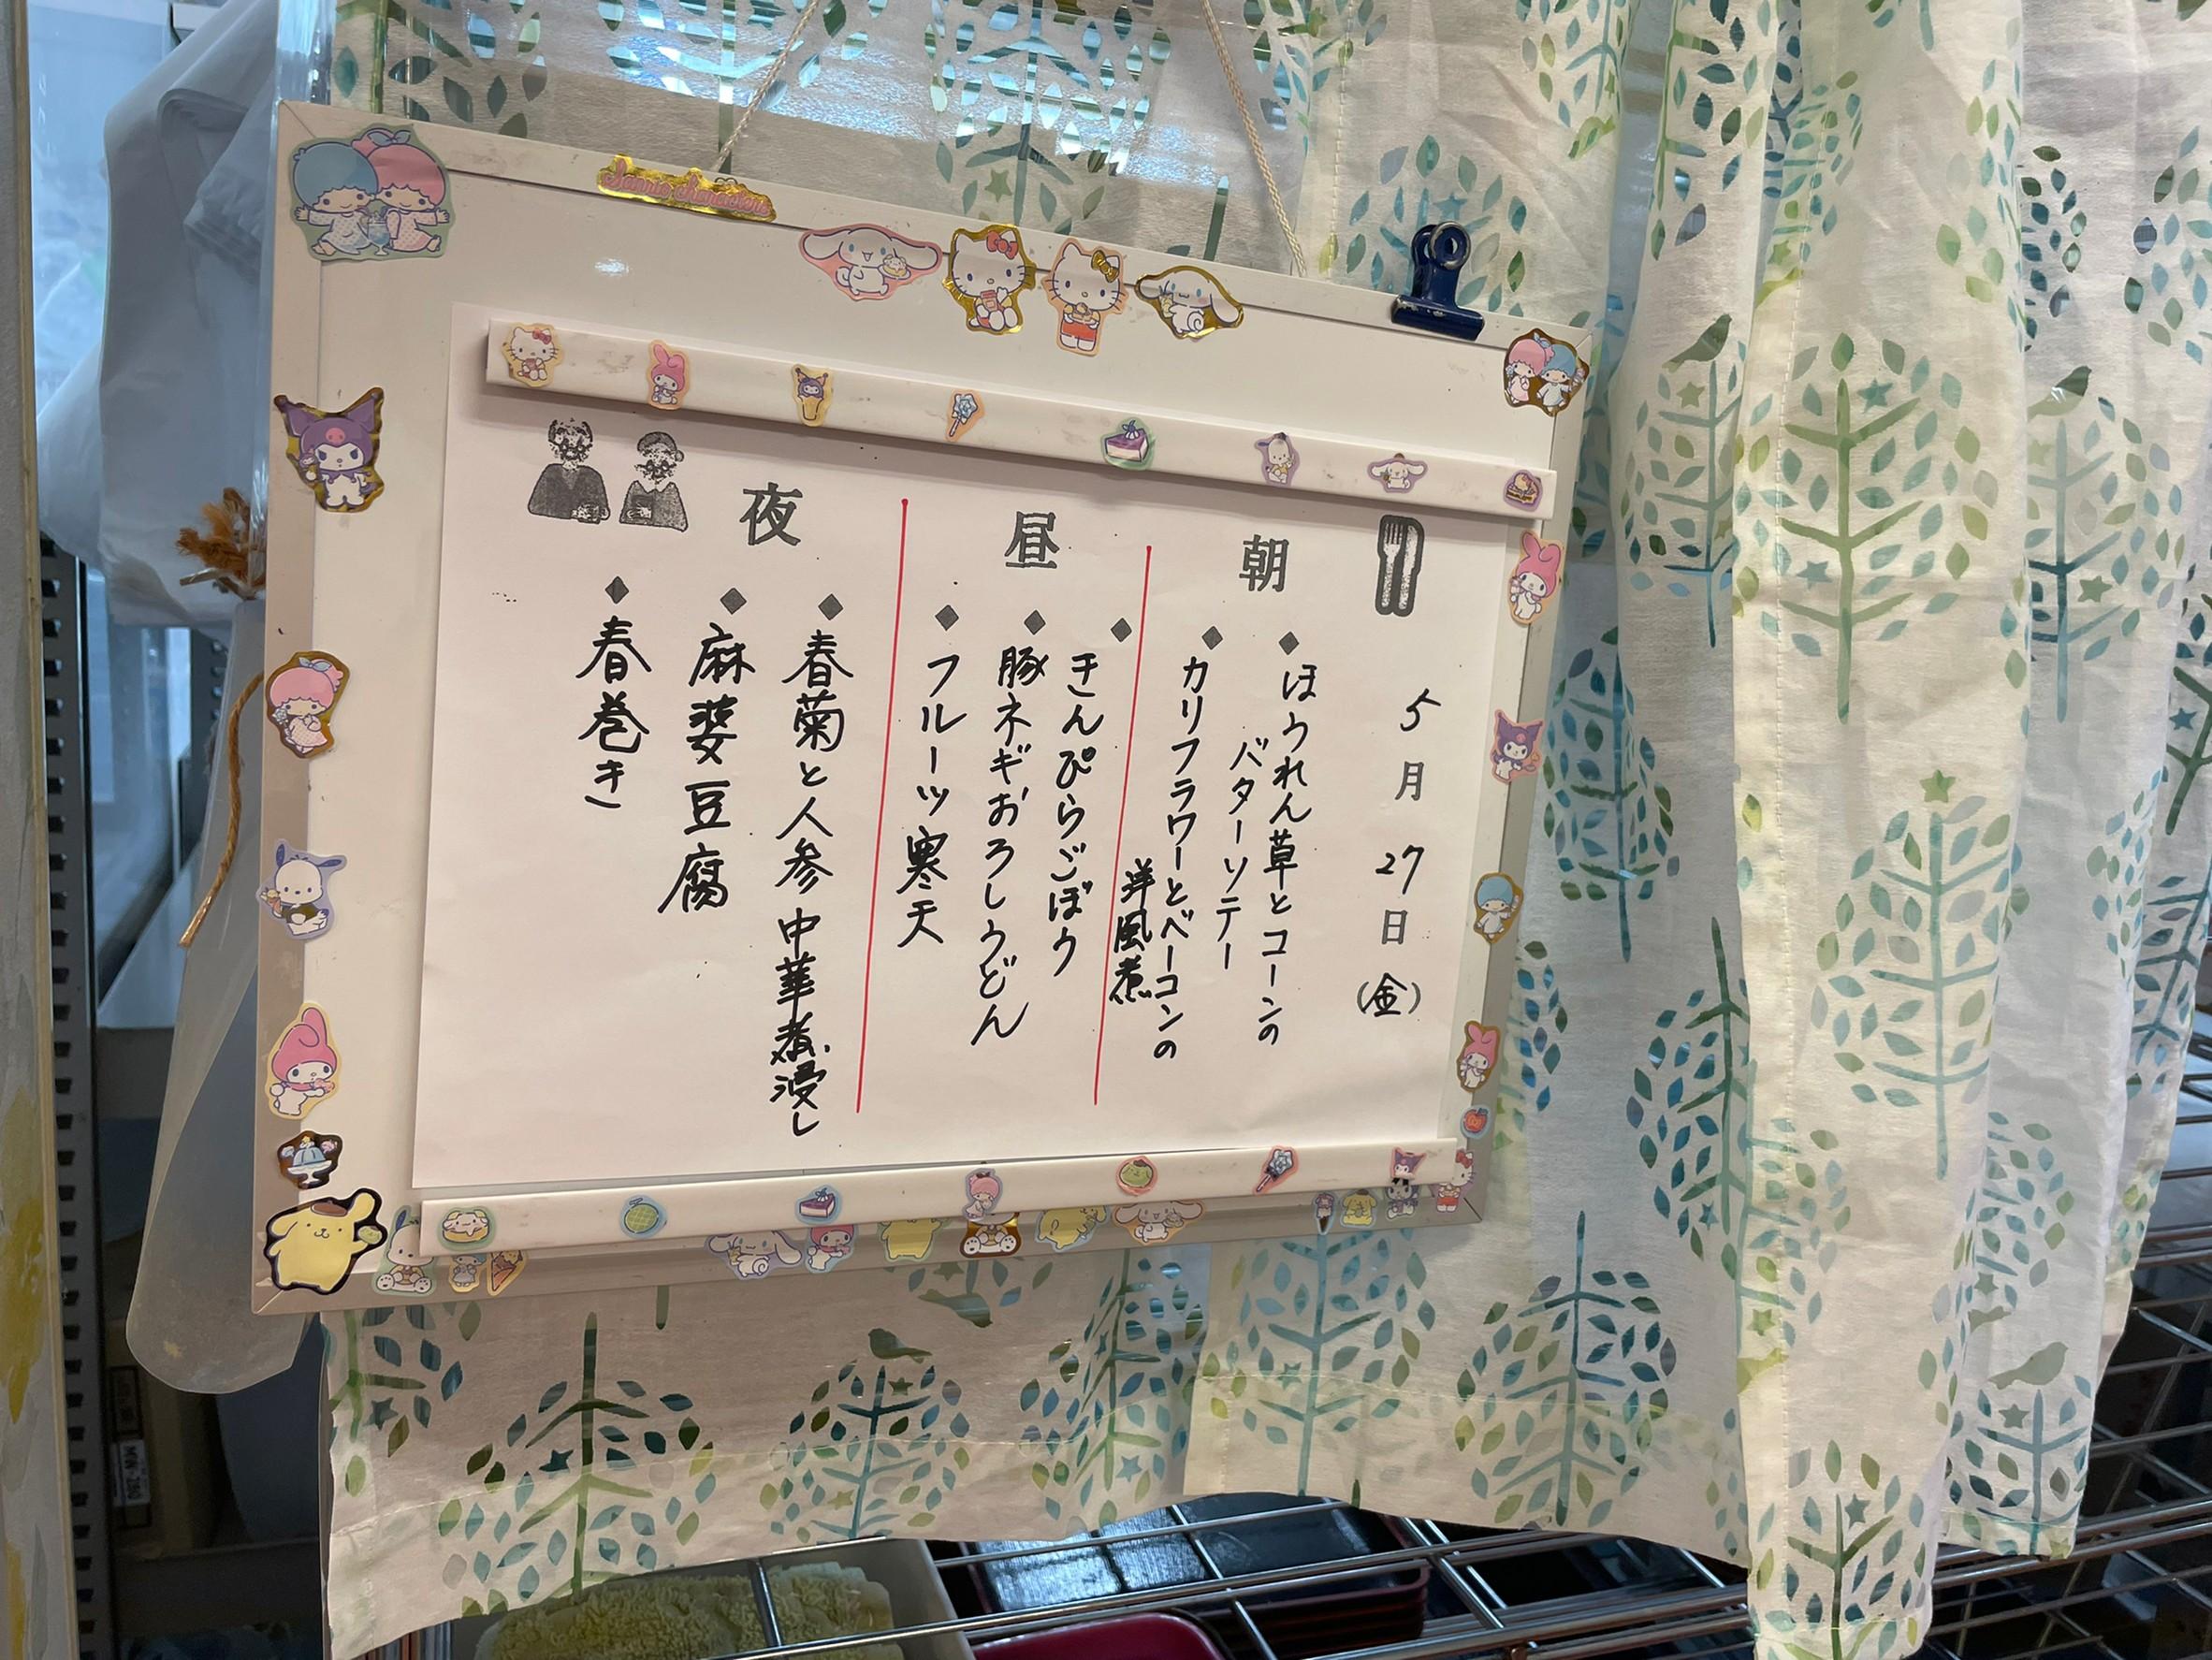 Sanrio characters
5月27日(金)
朝
◆ほうれん草とコーンの
バターソテー
◆カリフラワーとベーコンの
洋風煮
昼
◆きんぴらごぼう
◆豚ネギおろしうどん
◆フルーツ寒天
夜
◆春菊と人参中華煮浸し
◆麻婆豆腐
◆春巻き